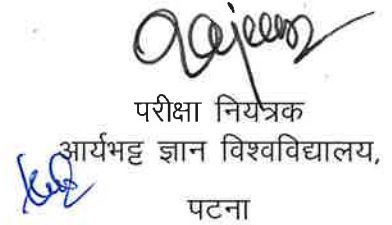 परीक्षा नियंत्रक
आर्यभट्ट ज्ञान विश्वविद्यालय,
पटना